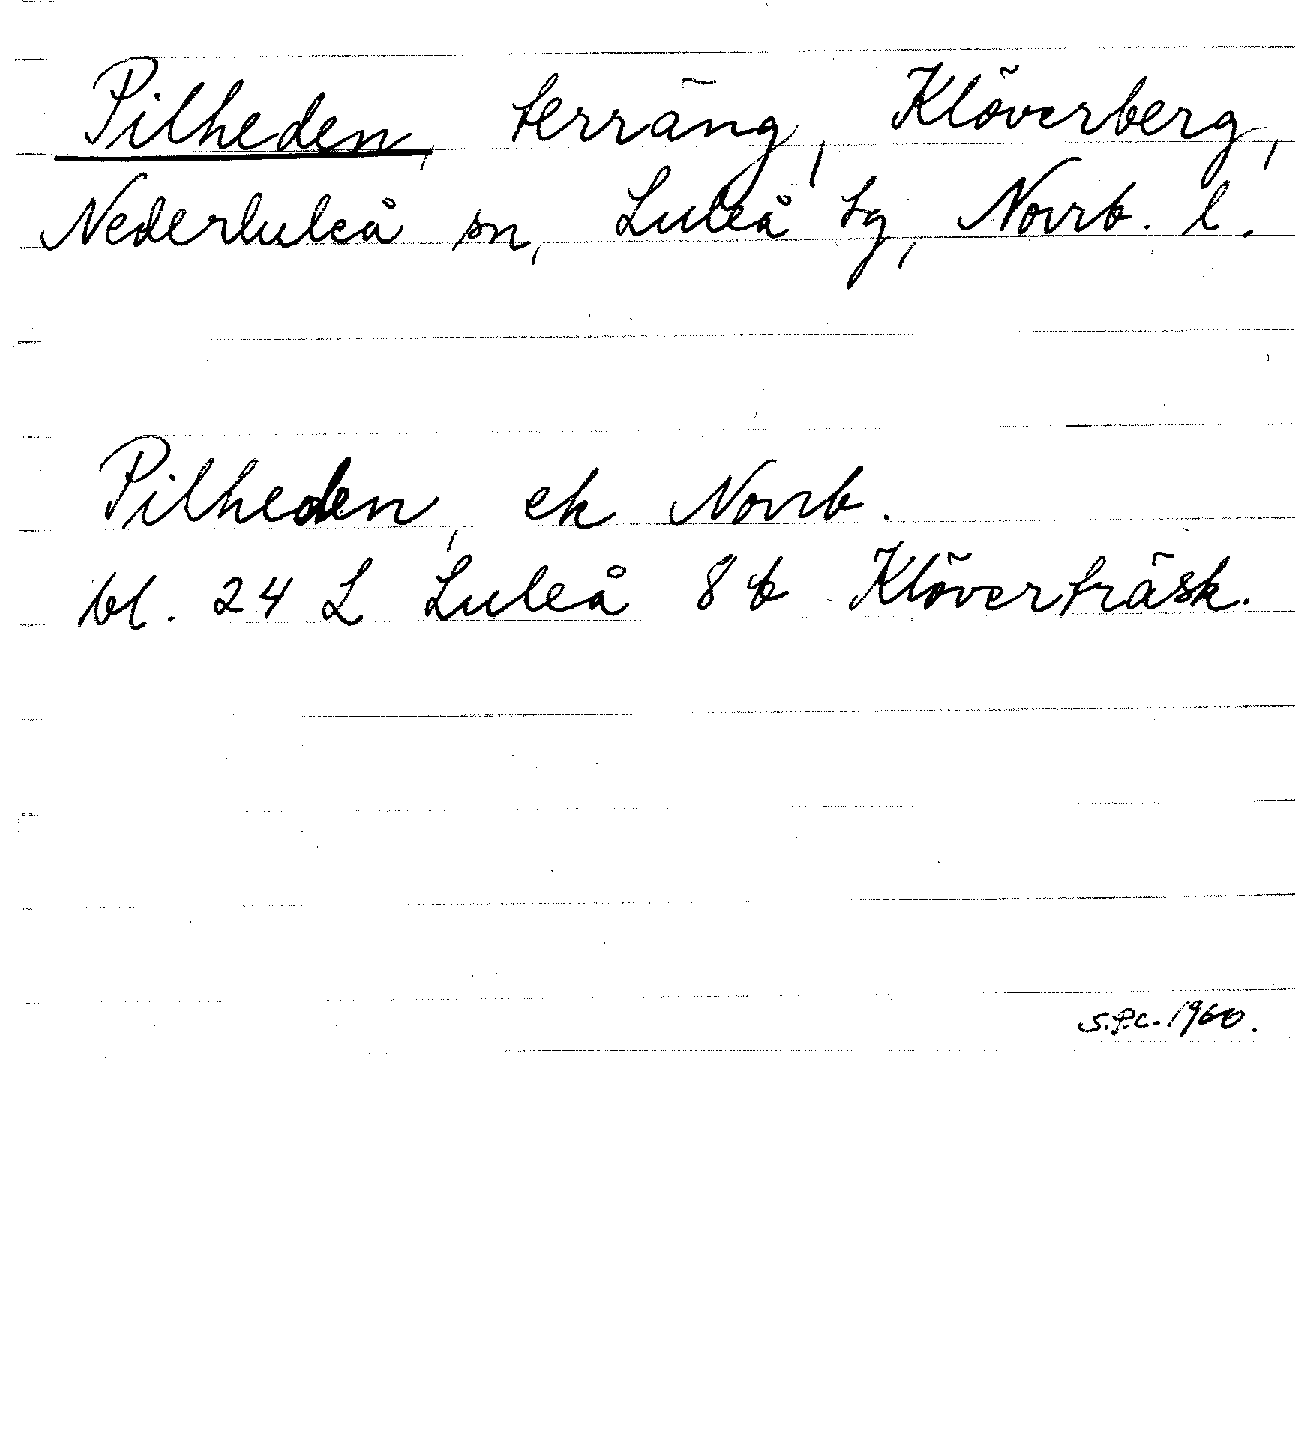 Pilheden, terräng, Klöverberg,
Nederluleå sn, Luleå tg, Norrb. l.
Pilheden, ek Norrb.
bl. 24 L Luleå 8 b Klöverträsk.
1960.